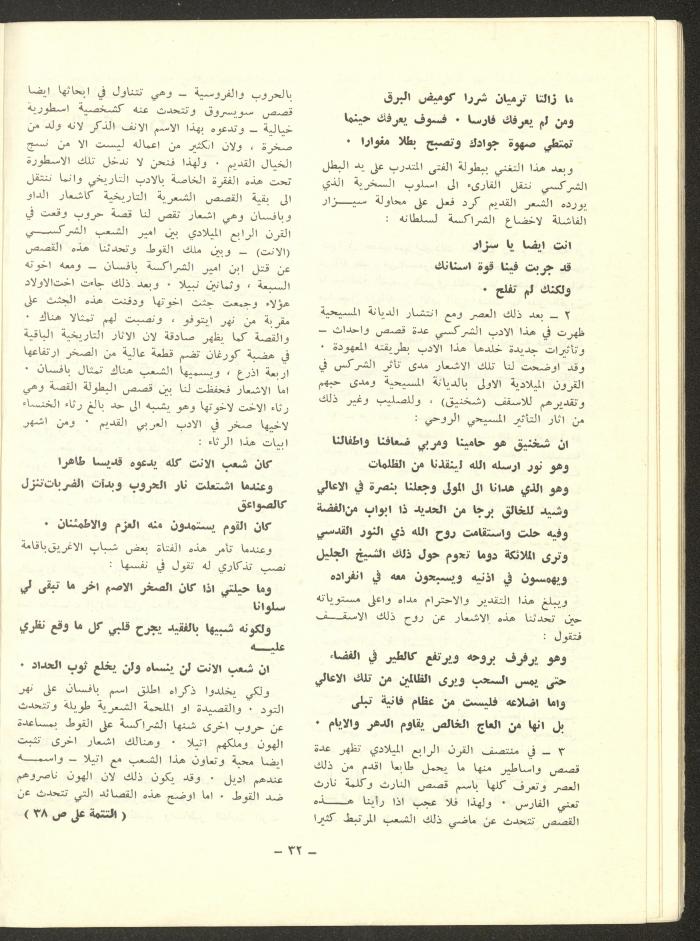 ما زالتا ترميان شررا كوميض البرق
ومن لم يعرفك فارسا . فسوف يعرفك حينما
تمتطي صهوة جوادك وتصبح بطلا مغوارا .
وبعد هذا التغني ببطولة الفتى المتدرب على يد البطل
الشركسي ننقل القارىء الى اسلوب السخرية الذي
يورده الشعر القديم كرد فعل على محاولة سيـزار
الفاشلة لاخضاع الشراكسة لسلطانه :
انت ايضا يا سزار
قد جربت فينا قوة اسنانك
ولكنك لم تفلح .
٢ ــ بعد ذلك العصر ومع انتشار الديانة المسيحية
ظهرت في هذا الادب الشركسي عدة قصص واحداث ــ
وتأثيرات جديدة خلدها هذا الادب بطريقته المعهودة .
وقد اوضحت لنا تلك الاشعار مدى تأثر الشركس في
القرون الميلادية الاولى بالديانة المسيحية ومدى حبهم
وتقديرهم للاسقف (شخنيق) ، وللصليب وغير ذلك
من اثار التأثير المسيحي الروحي :
ان شخنيق هو حامينا ومربي ضعافنا واطفالنا
وهو نور ارسله الله لينقذنا من الظلمات
وهو الذي هدانا الى المولى وجعلنا بنصرة في الاعالي
وشيد للخالق برجا من الحديد ذا ابواب من الفضة
وفيه حلت واستقامت روح الله ذي النور القدسي
وترى الملائكة دوما تحوم حول ذلك الشيخ الجليل
ويهمسون في اذنيه ويسبحون معه في انفراده
ويبلغ هذا التقدير والاحترام مداه واعلى مستوياته
حين تحدثنا هذه الاشعار عن روح ذلك الاسقـف
فتقول :
وهو يرفرف بروحه ويرتفع كالطير في الفضاء
حتى يمس السحب ويرى الظالمين من تلك الاعالي
واما اضلاعه فليست من عظام فانية تبلى
بل انها من العاج الخالص يقاوم الدهر والايام .
٣ ــ في منتصف القرن الرابع الميلادي تظهر عدة
قصص واساطير منها ما يحمل طابعا اقدم من ذلك
العصر وتعرف كلها باسم قصص النارث وكلمة نارث
تعني الفارس . ولهذا فلا عجب اذا راينا هـذه
القصص تتحدث عن ماضي ذلك الشعب المرتبط كثيرا
بالحروب والفروسية ــ وهي تتناول في ابحاثها ايضا
قصص سويسروق وتتحدث عنه كشخصية اسطورية
خيالية ــ وتدعوه بهذا الاسم الانف الذكر لانه ولد من
صخرة ، ولان الكثير من اعماله ليست الا من نسج
الخيال القديم . ولهذا فنحن لا ندخل تلك الاسطورة
تحت هذه الفقرة الخاصة بالادب التاريخي وانما ننتقل
الى بقية القصص الشعرية التاريخية كأشعار الداو
وبافسان وهي اشعار تقص لنا قصة حروب وقعت في
القرن الرابع الميلادي بين امير الشعب الشركسـي
(الانت) ــ وبين ملك القوط وتحدثنا هذه القصص
عن قتل ابن امير الشراكسة بافسان ــ ومعه اخوته
السبعة ، وثمانين نبيلا . وبعد ذلك جاءت اخت الاولاد
هؤلاء وجمعت جثث اخوتها ودفنت هذه الجثث على
مقربة من نهر ايتوفو ، ونصبت لهم تمثالا هناك .
والقصة كما يظهر صادقة لان الاثار التاريخية الباقية
في هضبة كورغان تضم قطعة عالية من الصخر ارتفاعها
اربعة اذرع ، ويسميها الشعب هناك تمثال بافسان .
اما الاشعار فحفظت لنا بين قصص البطولة القصة وهي
رثاء الاخت لاخوتها وهو يشبه الى حد بالغ رثاء الخنساء
لاخيها صخر في الادب العربي القديم . ومن اشهر
ابيات هذا الرثاء :
كان شعب الانت كله يدعوه قديسا طاهرا
وعندما اشتعلت نار الحروب وبدأت الضربات تنزل
كالصواعق
كان القوم يستمدون منه العزم والاطمئنان .
وعندما تأمر هذه الفتاة بعض شباب الاغريق باقامة
نصب تذكاري له تقول في نفسها :
وما حيلتي اذا كان الصخر الاصم اخر ما تبقى لي
سلوانا
ولكونه شبيها بالفقيد يجرح قلبي كل ما وقع نظري
عليـه
ان شعب الانت لن ينساه ولن يخلع ثوب الحداد .
ولكي يخلدوا ذكراه اطلق اسم بافسان على نهر
التود . والقصيدة او الملحمة الشعرية طويلة وتتحدث
عن حروب اخرى شنها الشراكسة على القوط بمساعدة
الهون وملكهم اتيلا . وهنالك اشعار اخرى تثبت
ايضا محبة وتعاون هذا الشعب مع اتيلا ــ واسمـه
عندهم اديل . وقد يكون ذلك لان الهون ناصروهم
ضد القوط . اما اوضح هذه القصائد التي تتحدث عن
( التتمة على ص ٣٨ )
ــ ٣٢ ــ